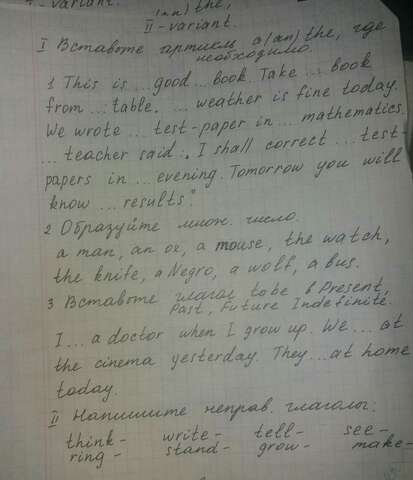 variant.
(an) the,
II-variant.
I Вставьте артикль a(an) the, где
необходимо.
1 This is ... good ... book. Take ... book
from ... table. ... weather is fine today.
We wrote ... test-paper in ... mathematics
... teacher said: „I shall correct ... test-
papers in ... evening. Tomorrow you will
know ... results".
2 Образуйте множ. число.
a man, an ox, a mouse, the watch,
the knife, a Negro, a wolf, a bus.
3 Вставьте глагол to be в Present,
Past, Future Indefinite.
I ... a doctor when I grow up. We ... at
the cinema yesterday. They ... at home
today.
II Напишите неправ. глаголы:
think- write- tell- see-
ring- stand- grow- make-